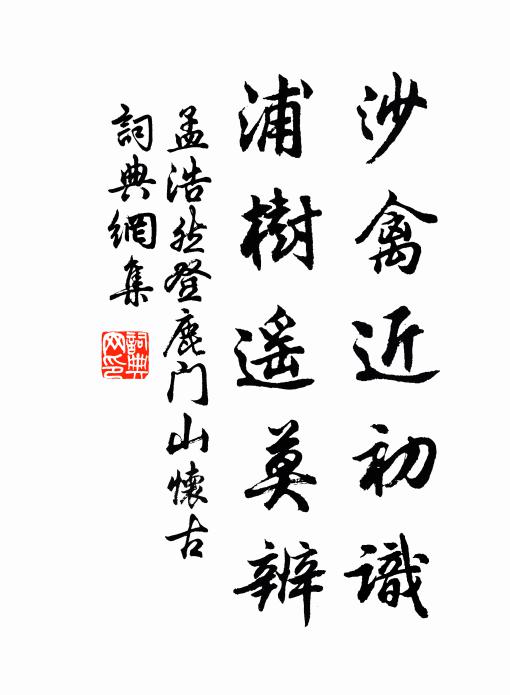 沙禽近初識
浦樹遥莫辨
孟浩然登鹿门山懷古
詞典網集
詞典
网印